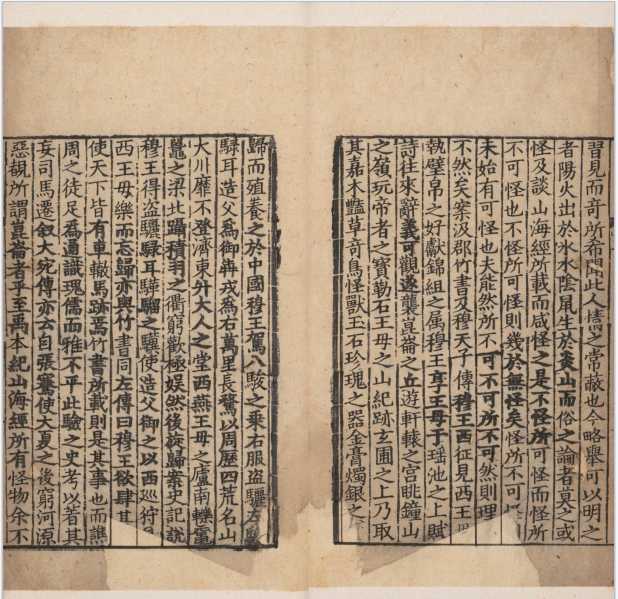 習見而奇所希聞此人情之常蔽也今略舉可以明之
者陽火出於冰水陰鼠生於炎山而俗之論者莫之或
怪及談山海經所載而咸怪之是不怪所可怪而怪所
不可怪也不怪所可怪則幾於無怪矣怪所不可
未始有可怪也夫能然所不可不可所不可然則理
不然矣案汲郡竹書及穆天子傳穆王西征見西王
執璧帛之好獻錦組之属穆王享王母于瑶池之上賦
詩往來辭義可觀遂襲崑崙之丘遊軒轅之宫眺鐘山
之嶺玩帝者之寶勒石王母之山紀跡玄圃之上乃取
其嘉木豔草奇鳥怪獸玉石珍瑰之器金膏燭銀之
歸而殖養之於中國穆王駕八駿之乘右服盜驪左
騄耳造父為御犇戎為右萬里長騖以周歷四荒名山
大川靡不登濟東升大人之堂西燕王母之廬南轢黿
鼉之梁北躡積羽之衢窮歡極娱然後旋歸案史記說
穆王得盜驪騄耳驊騮之驥使造父御之以西巡狩
西王母樂而忘歸亦與竹書同左傳曰穆王欲肆其
使天下皆有車轍馬跡焉竹書所載則是其事也而譙
周之徒足為通識瑰儒而雅不平此驗之史考以著其
妄司馬遷叙大宛傳亦云自張騫使大夏之後窮河源
惡覩所謂崑崙者乎至禹本紀山海經所有怪物余不